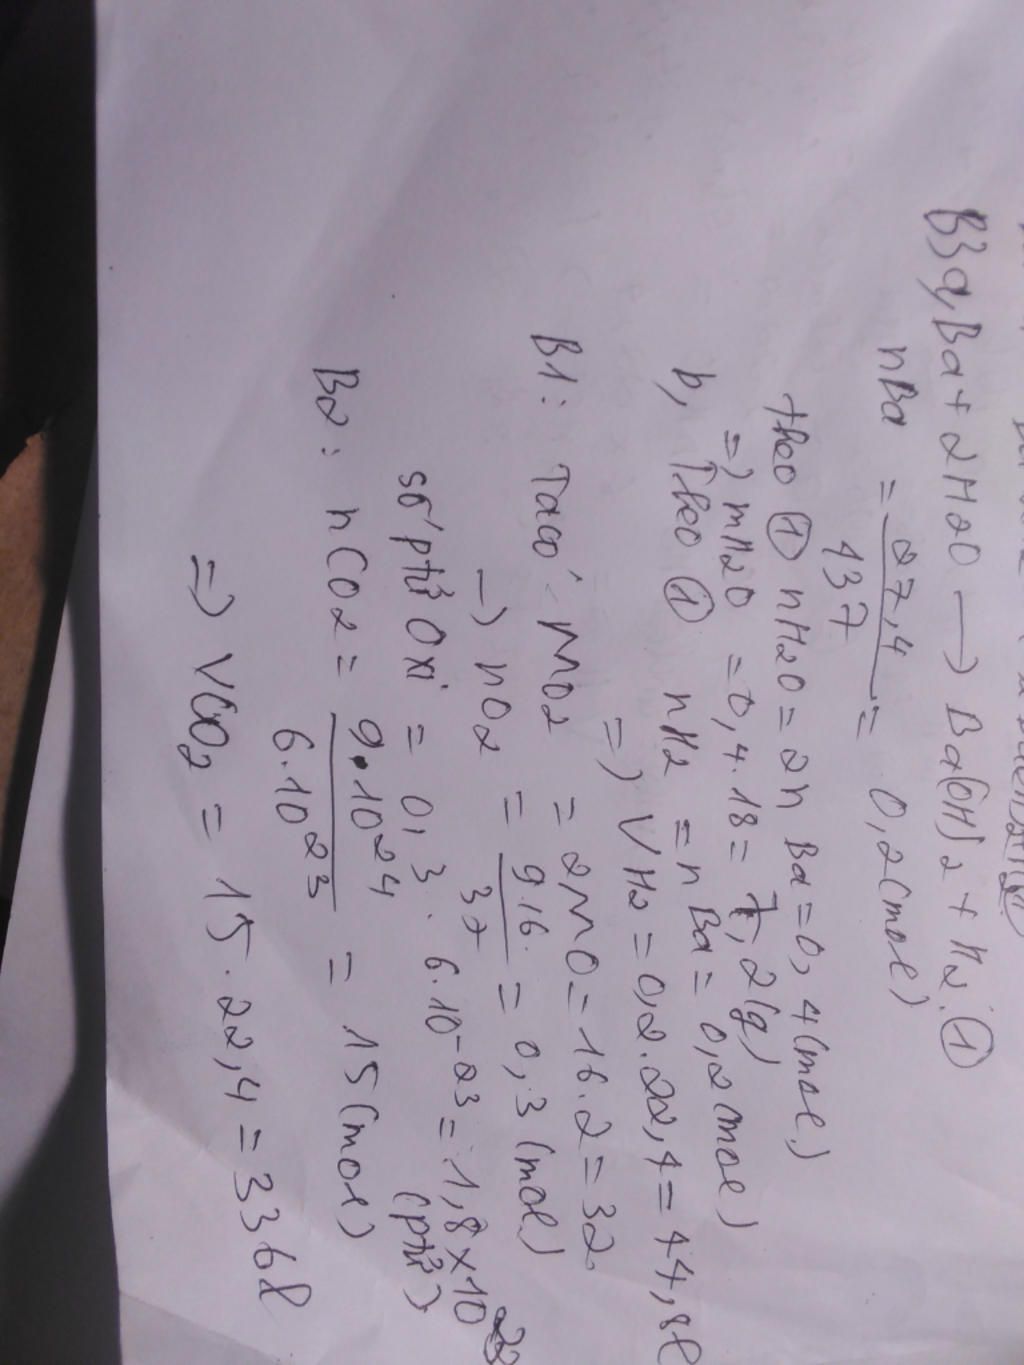 B3 a, Ba + 2H2O —> Ba(OH)2 + H2. ①
nBa = 27,4 / 137 = 0,2(mol)
theo ① nH2O = 2n Ba = 0,4(mol)
=) mH2O = 0,4.18 = 7,2(g)
b, Theo ① nH2 = n Ba = 0,2(mol)
=) VH2 = 0,2.22,4 = 44,8l
B1: Ta có: MO2 = 2MO = 16.2 = 32
—) nO2 = 9,6 / 32 = 0,3(mol)
số ptử Oxi = 0,3 . 6.10-23 = 1,8×10
(ptử)
B2: nCO2 = 9.10²⁴ / 6.10²³ = 15(mol)
=) VCO2 = 15.22,4 = 336l